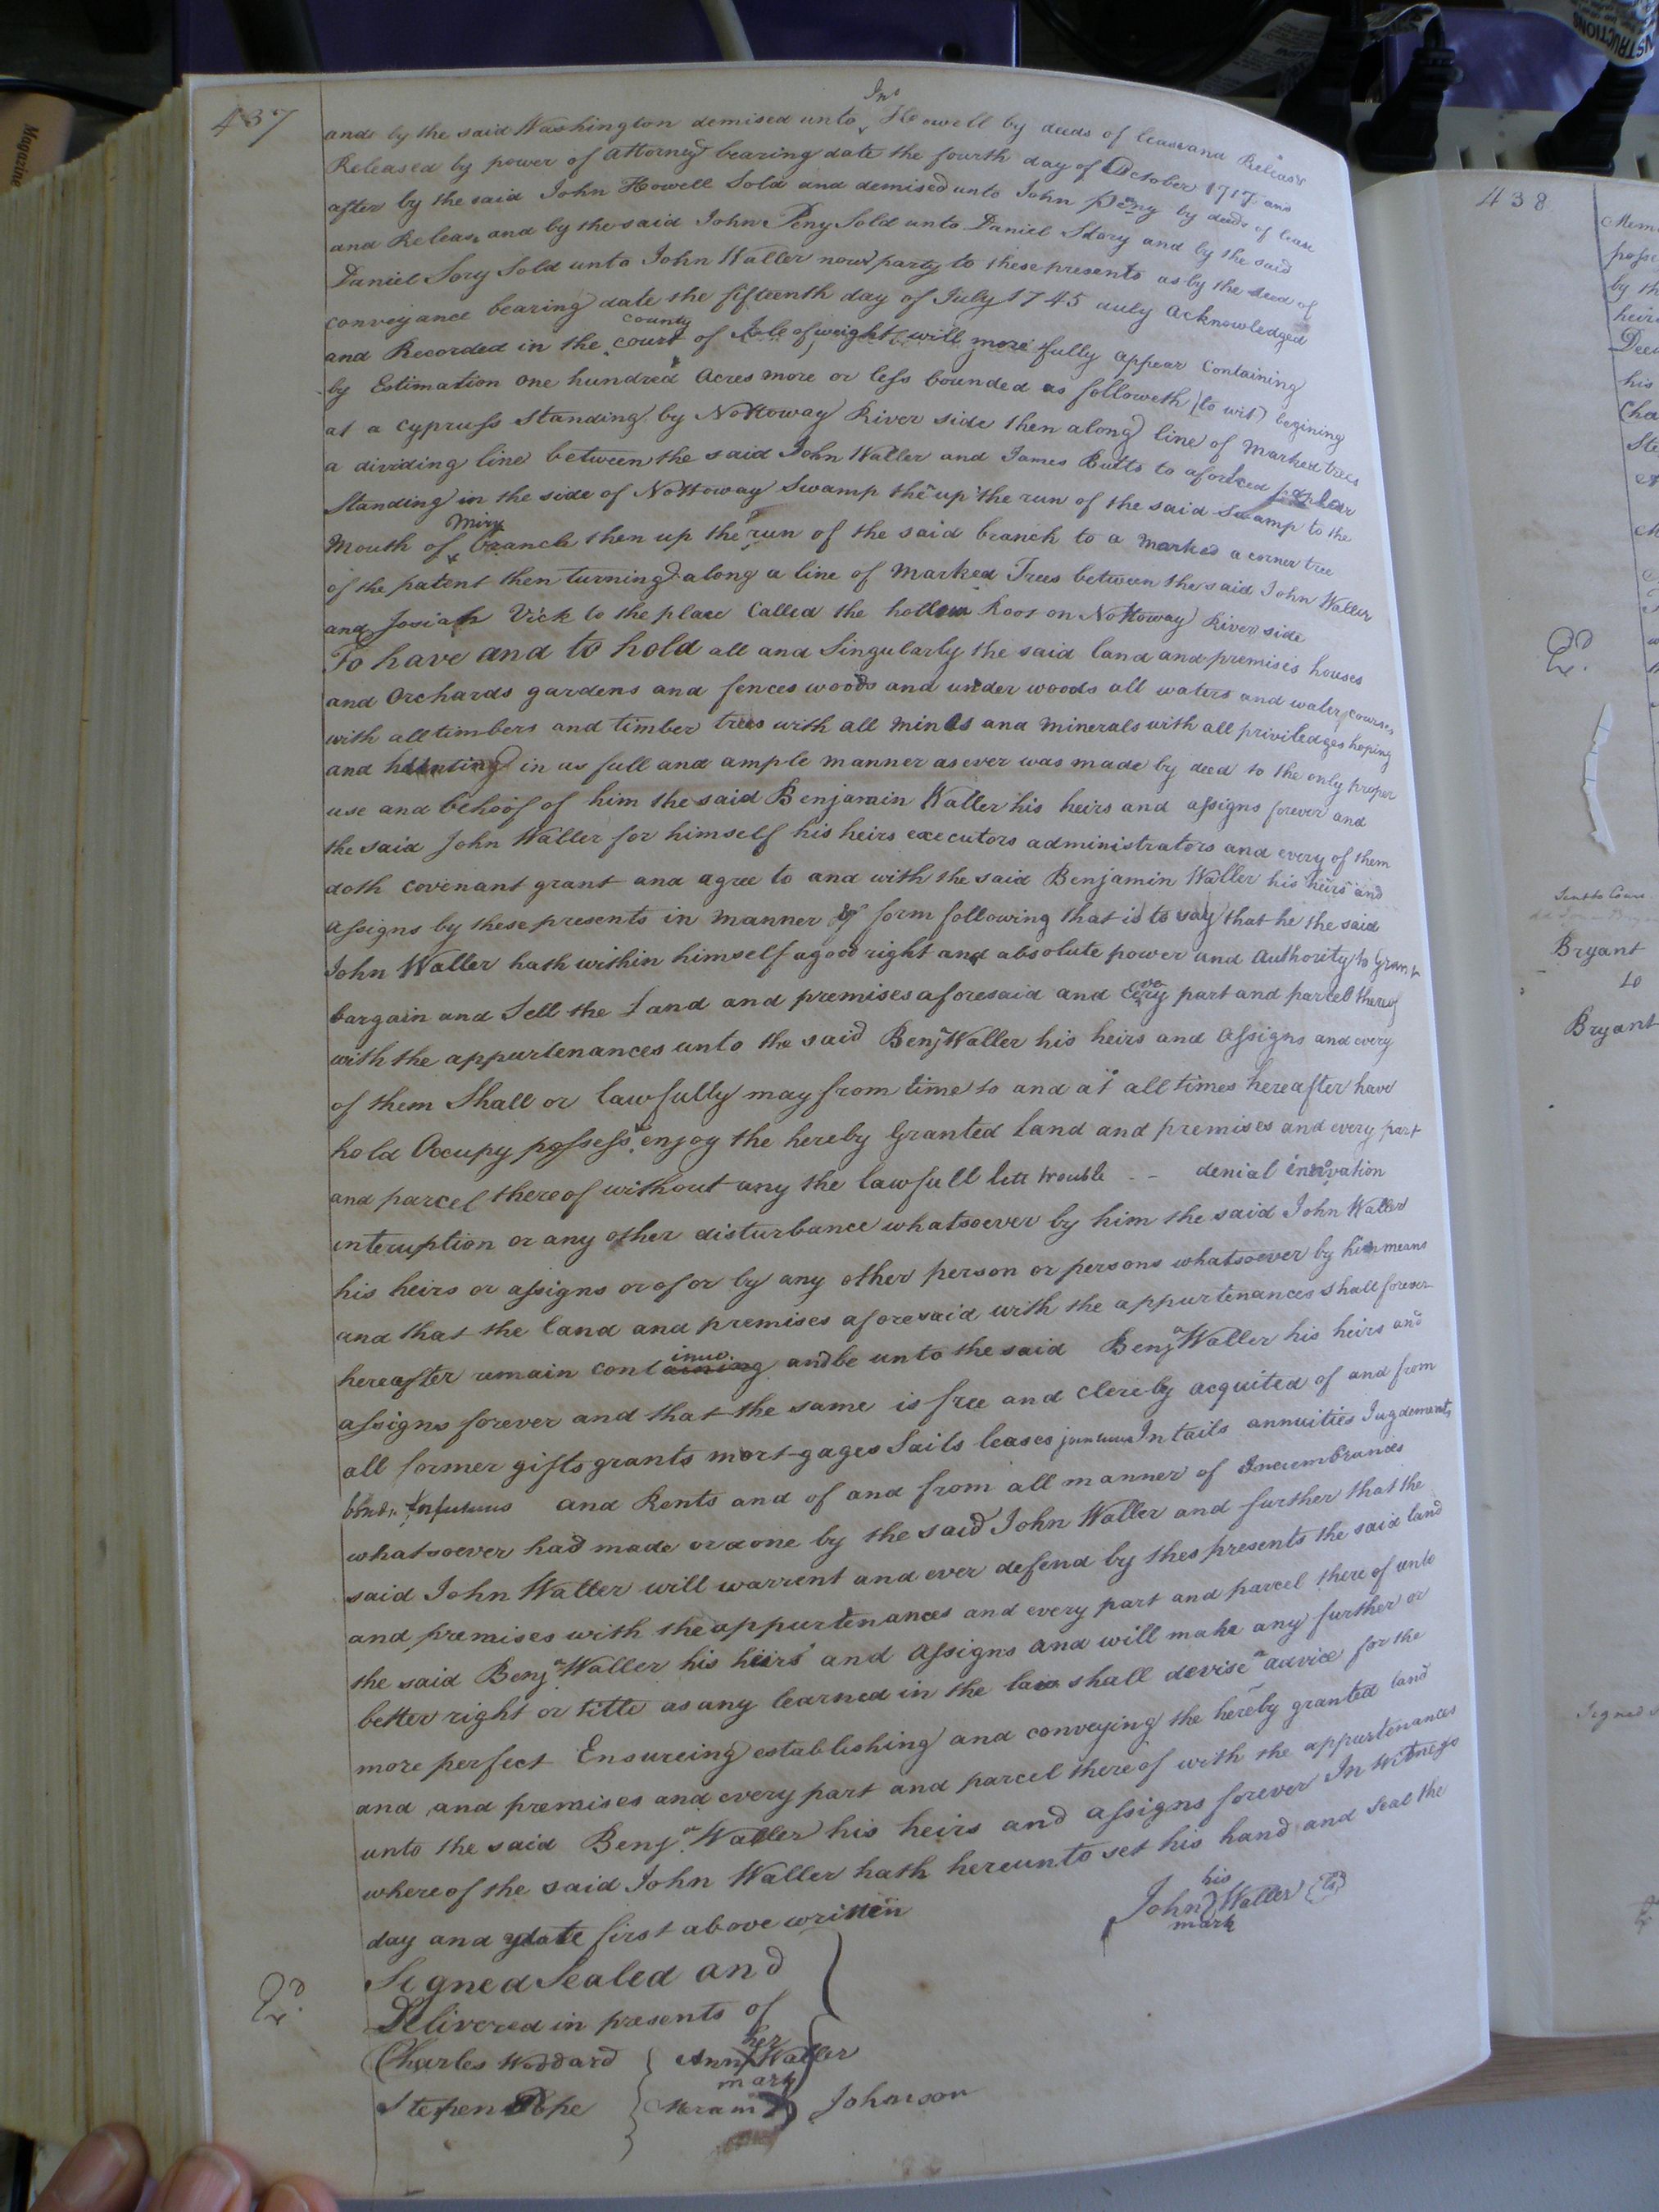 437
and by the said Washington demised unto Jno Howell by deeds of lease and Release
Released by power of attorney bearing date the fourth day of October 1717 and
after by the said John Howell Sold and demised unto John Peny by deeds of lease
and Release and by the said John Peny Sold unto Daniel Story and by the said
Daniel Sory Sold unto John Waller now party to these presents as by the deed of
conveyance bearing date the fifteenth day of July 1745 duly acknowledged
and Recorded in the county court of Isle of weight will more fully appear Containing
by Estimation one hundred acres more or less bounded as followeth (to wit) begining
at a cypruss Standing by Nottoway River side then along line of marked trees
a dividing line between the said John Waller and James Butts to a forked poplar
Standing in the side of Nottoway Swamp then up the run of the said Swamp to the
Mouth of Miry branch then up the run of the said branch to a marked a corner tree
of the patent then turning along a line of marked Trees between the said John Waller
and Josiah Vick to the place Called the hollow Root on Nottoway River side
To have and to hold all and Singularly the said land and premises houses
and Orchards gardens and fences woods and under woods all waters and water courses
with all timbers and timber trees with all mines and minerals with all priviledges hoping
and haunting in as full and ample manner as ever was made by deed to the only proper
use and behoof of him the said Benjamin Waller his heirs and assigns forever and
the said John Waller for himself his heirs executors administrators and every of them
doth covenant grant and agree to and with the said Benjamin Waller his heirs and
assigns by these presents in manner & form following that is to say that he the said
John Waller hath within himself a good right and absolute power and authority to Grant
bargain and Sell the Land and premises aforesaid and every part and parcel thereof
with the appurtenances unto the said Benjn Waller his heirs and assigns and every
of them Shall or lawfully may from time to and at all times hereafter have
hold Occupy possess & enjoy the hereby Granted land and premises and every part
and parcel thereof without any the lawfull lett trouble - - denial
interuption or any other disturbance whatsoever by him the said John Waller
his heirs or assigns or of or by any other person or persons whatsoever by him means
and that the land and premises aforesaid with the appurtenances shall forever
hereafter remain continue and be unto the said Benjn Waller his heirs and
assigns forever and that the same is free and clerely acquited of and from
all former gifts grants mort-gages Sails leases Intails annuities Jugdements
and Rents and of and from all manner of Incumbrances
whatsoever had made or done by the said John Waller and further that the
said John Waller will warrent and ever defend by thes presents the said land
and premises with the appurtenances and every part and parcel there of unto
the said Benjn Waller his heirs and assigns and will make any further or
better right or title as any learned in the law shall devise or advice for the
more perfect Ensureing establishing and conveying the hereby granted land
and and premises and every part and parcel thereof with the appurtenances
unto the said Benjn Waller his heirs and assigns forever In witness
whereof the said John Waller hath hereunto set his hand and Seal the
day and date first above written
his
John Waller
mark
Signed Sealed and
Delivered in presents of
Charles Woddard
her
Ann X Waller
mark
Stephen Pope
Johnson
438
Bryant
to
Bryant